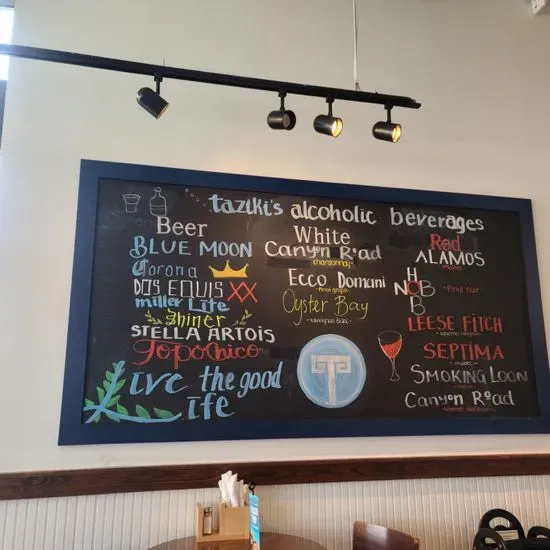 taziki's alcoholic beverages
Beer
BLUE MOON
Corona
DOS EQUIS XX
miller Lite
shiner
STELLA ARTOIS
Topo Chico
Live the good
life
White
Canyon Road
- chardonnay -
Ecco Domani
- Pinot grigio -
Oyster Bay
- sauvignon blanc -
T
Red
ALAMOS
- malbec -
HOB
NOB
- Pinot nuir -
LEESE FITCH
- cabernet sauvignon -
SEPTIMA
- malbec -
SMOKING LOON
Canyon Road